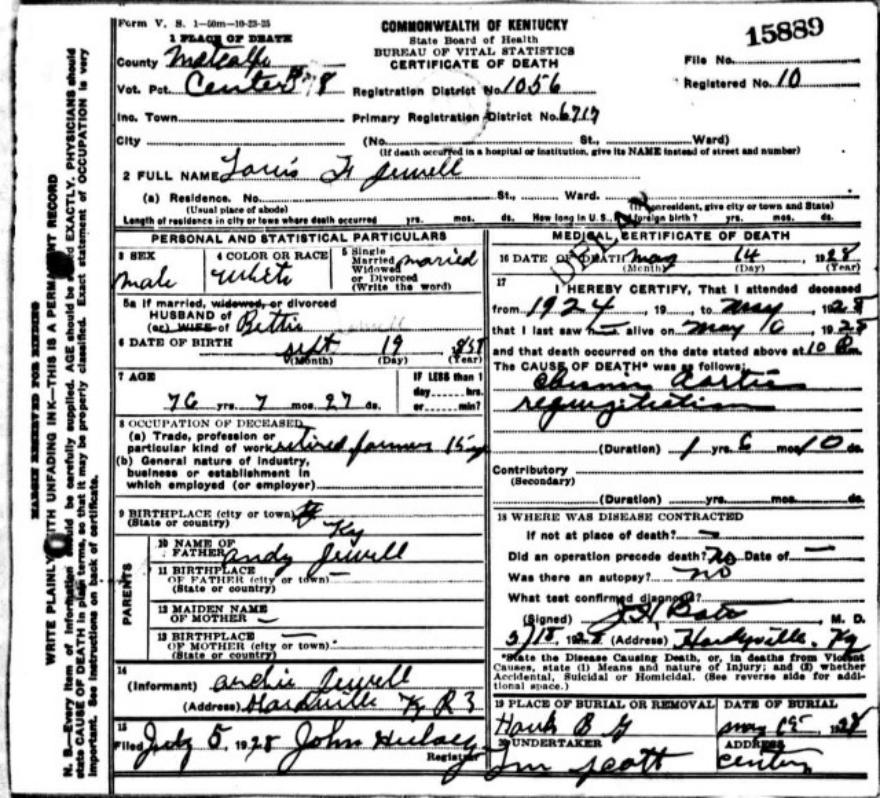 Form V. S. 1-50m-10-23-25
COMMONWEALTH OF KENTUCKY
State Board of Health
BUREAU OF VITAL STATISTICS
CERTIFICATE OF DEATH
15889
1 PLACE OF DEATH
County Metcalfe
File No.
Vot. Pct. Center 8
Registration District No. 1056
Registered No. 10
Inc. Town
Primary Registration District No. 6717
City (No. St., Ward)
(If death occurred in a hospital or institution, give its NAME instead of street and number)
2 FULL NAME Louis H Jewell
(a) Residence. No. St., Ward.
(Usual place of abode) (If nonresident, give city or town and State)
Length of residence in city or town where death occurred yrs. mos. ds. How long in U.S., if of foreign birth? yrs. mos. ds.
DELAY
PERSONAL AND STATISTICAL PARTICULARS
3 SEX male
4 COLOR OR RACE White
5 Single Married Widowed or Divorced (Write the word) married
5a If married, widowed, or divorced
HUSBAND of
(or) WIFE of Bettie
6 DATE OF BIRTH Sept 19
(Month) (Day) (Year)
7 AGE
IF LESS than 1
day hrs.
or min?
76 yrs. 7 mos. 27 ds.
8 OCCUPATION OF DECEASED
(a) Trade, profession or
particular kind of work retired farmer
(b) General nature of industry,
business or establishment in
which employed (or employer)
9 BIRTHPLACE (city or town)
(State or country) Ky
PARENTS
10 NAME OF
FATHER andy Jewell
11 BIRTHPLACE
OF FATHER (city or town) —
(State or country)
12 MAIDEN NAME
OF MOTHER —
13 BIRTHPLACE —
OF MOTHER (city or town)
(State or country)
14
(Informant) archie Jewell
(Address) Ky R 3
15
Filed July 5, 1928 John
Registrar
MEDICAL CERTIFICATE OF DEATH
16 DATE OF DEATH May 14 1928
(Month) (Day) (Year)
17
I HEREBY CERTIFY, That I attended deceased
from 1924, 19 , to May , 1928
that I last saw h alive on May 6, 1928
and that death occurred on the date stated above at 10 m.
The CAUSE OF DEATH* was as follows:
Chronic aortic
regurgitation
(Duration) 1 yrs. 6 mos. 10 ds.
Contributory
(Secondary)
(Duration) yrs. mos. ds.
18 WHERE WAS DISEASE CONTRACTED
If not at place of death? —
Did an operation precede death? no Date of —
Was there an autopsy? no
What test confirmed diagnosis?
(Signed) M. D.
18, 1928 (Address) Hardyville, Ky
*State the Disease Causing Death, or, in deaths from Violent
Causes, state (1) Means and nature of Injury; and (2) whether
Accidental, Suicidal or Homicidal. (See reverse side for addi-
tional space.)
19 PLACE OF BURIAL OR REMOVAL
DATE OF BURIAL
May 1928
20 UNDERTAKER
Scott
ADDRESS
Center
MARGIN RESERVED FOR BINDING
WRITE PLAINLY WITH UNFADING INK—THIS IS A PERMANENT RECORD
N. B.—Every item of information should be carefully supplied. AGE should be stated EXACTLY. PHYSICIANS should
state CAUSE OF DEATH in plain terms, so that it may be properly classified. Exact statement of OCCUPATION is very
important. See instructions on back of certificate.